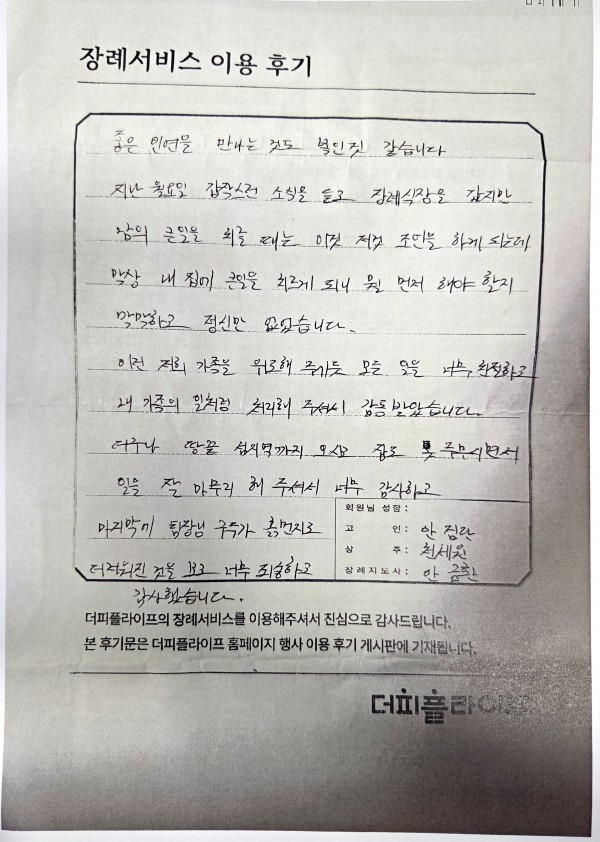 장례서비스 이용 후기
좋은 인연을 만나는 것도 복인것 같습니다
지난 월요일 갑작스런 소식을 듣고 장례식장을 갔지만
남의 큰일을 치를 때는 이것 저것 조언을 하게 되는데
막상 내 집에 큰일을 치르게 되니 뭘 먼저 해야 할지
막막하고 정신만 없었습니다.
이런 저희 가족을 위로해 주기듯 모든 일을 너무 친절하고
내 가족의 일처럼 처리해 주셔서 감동받았습니다.
더구나 땅끝 섬지역까지 오시고 잠도 못 주무시면서
일을 잘 마무리 해 주셔서 너무 감사하고
마지막에 팀장님 구두가 흙먼지로
더러워진 것을 보고 너무 죄송하고
감사했습니다.
회원님 성함 :
고 인 : 안점단
상 주 : 최세원
장례지도사 : 안
더피플라이프의 장례서비스를 이용해주셔서 진심으로 감사드립니다.
본 후기문은 더피플라이프 홈페이지 행사 이용 후기 게시판에 기재됩니다.
더피플라이프